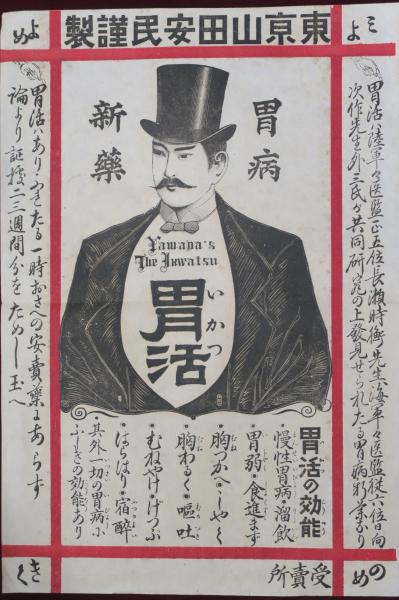 東亰山田安民謹製
みよ
胃活ハ陸軍々医監正五位長瀬時衡先生海軍々医監従六位日向
次作先生外三氏が共同研究の上發見せられたる胃病新薬なり
よめ
胃病
新藥
Yamada's
The Ikwatsu
いかつ
胃活
胃活の効能
慢性胃病・溜飲
胃弱・食進まず
胸つかへ・しやく
胸わるく・嘔吐
むねやけ・げつぷ
はらはり・宿酔
其外一切の胃病に
ふしぎの効能あり
胃活ハありふれたる一時おさへの安賣藥にあらず
論より証據二三週間分をためし玉へ
のめ
受賣所
きく